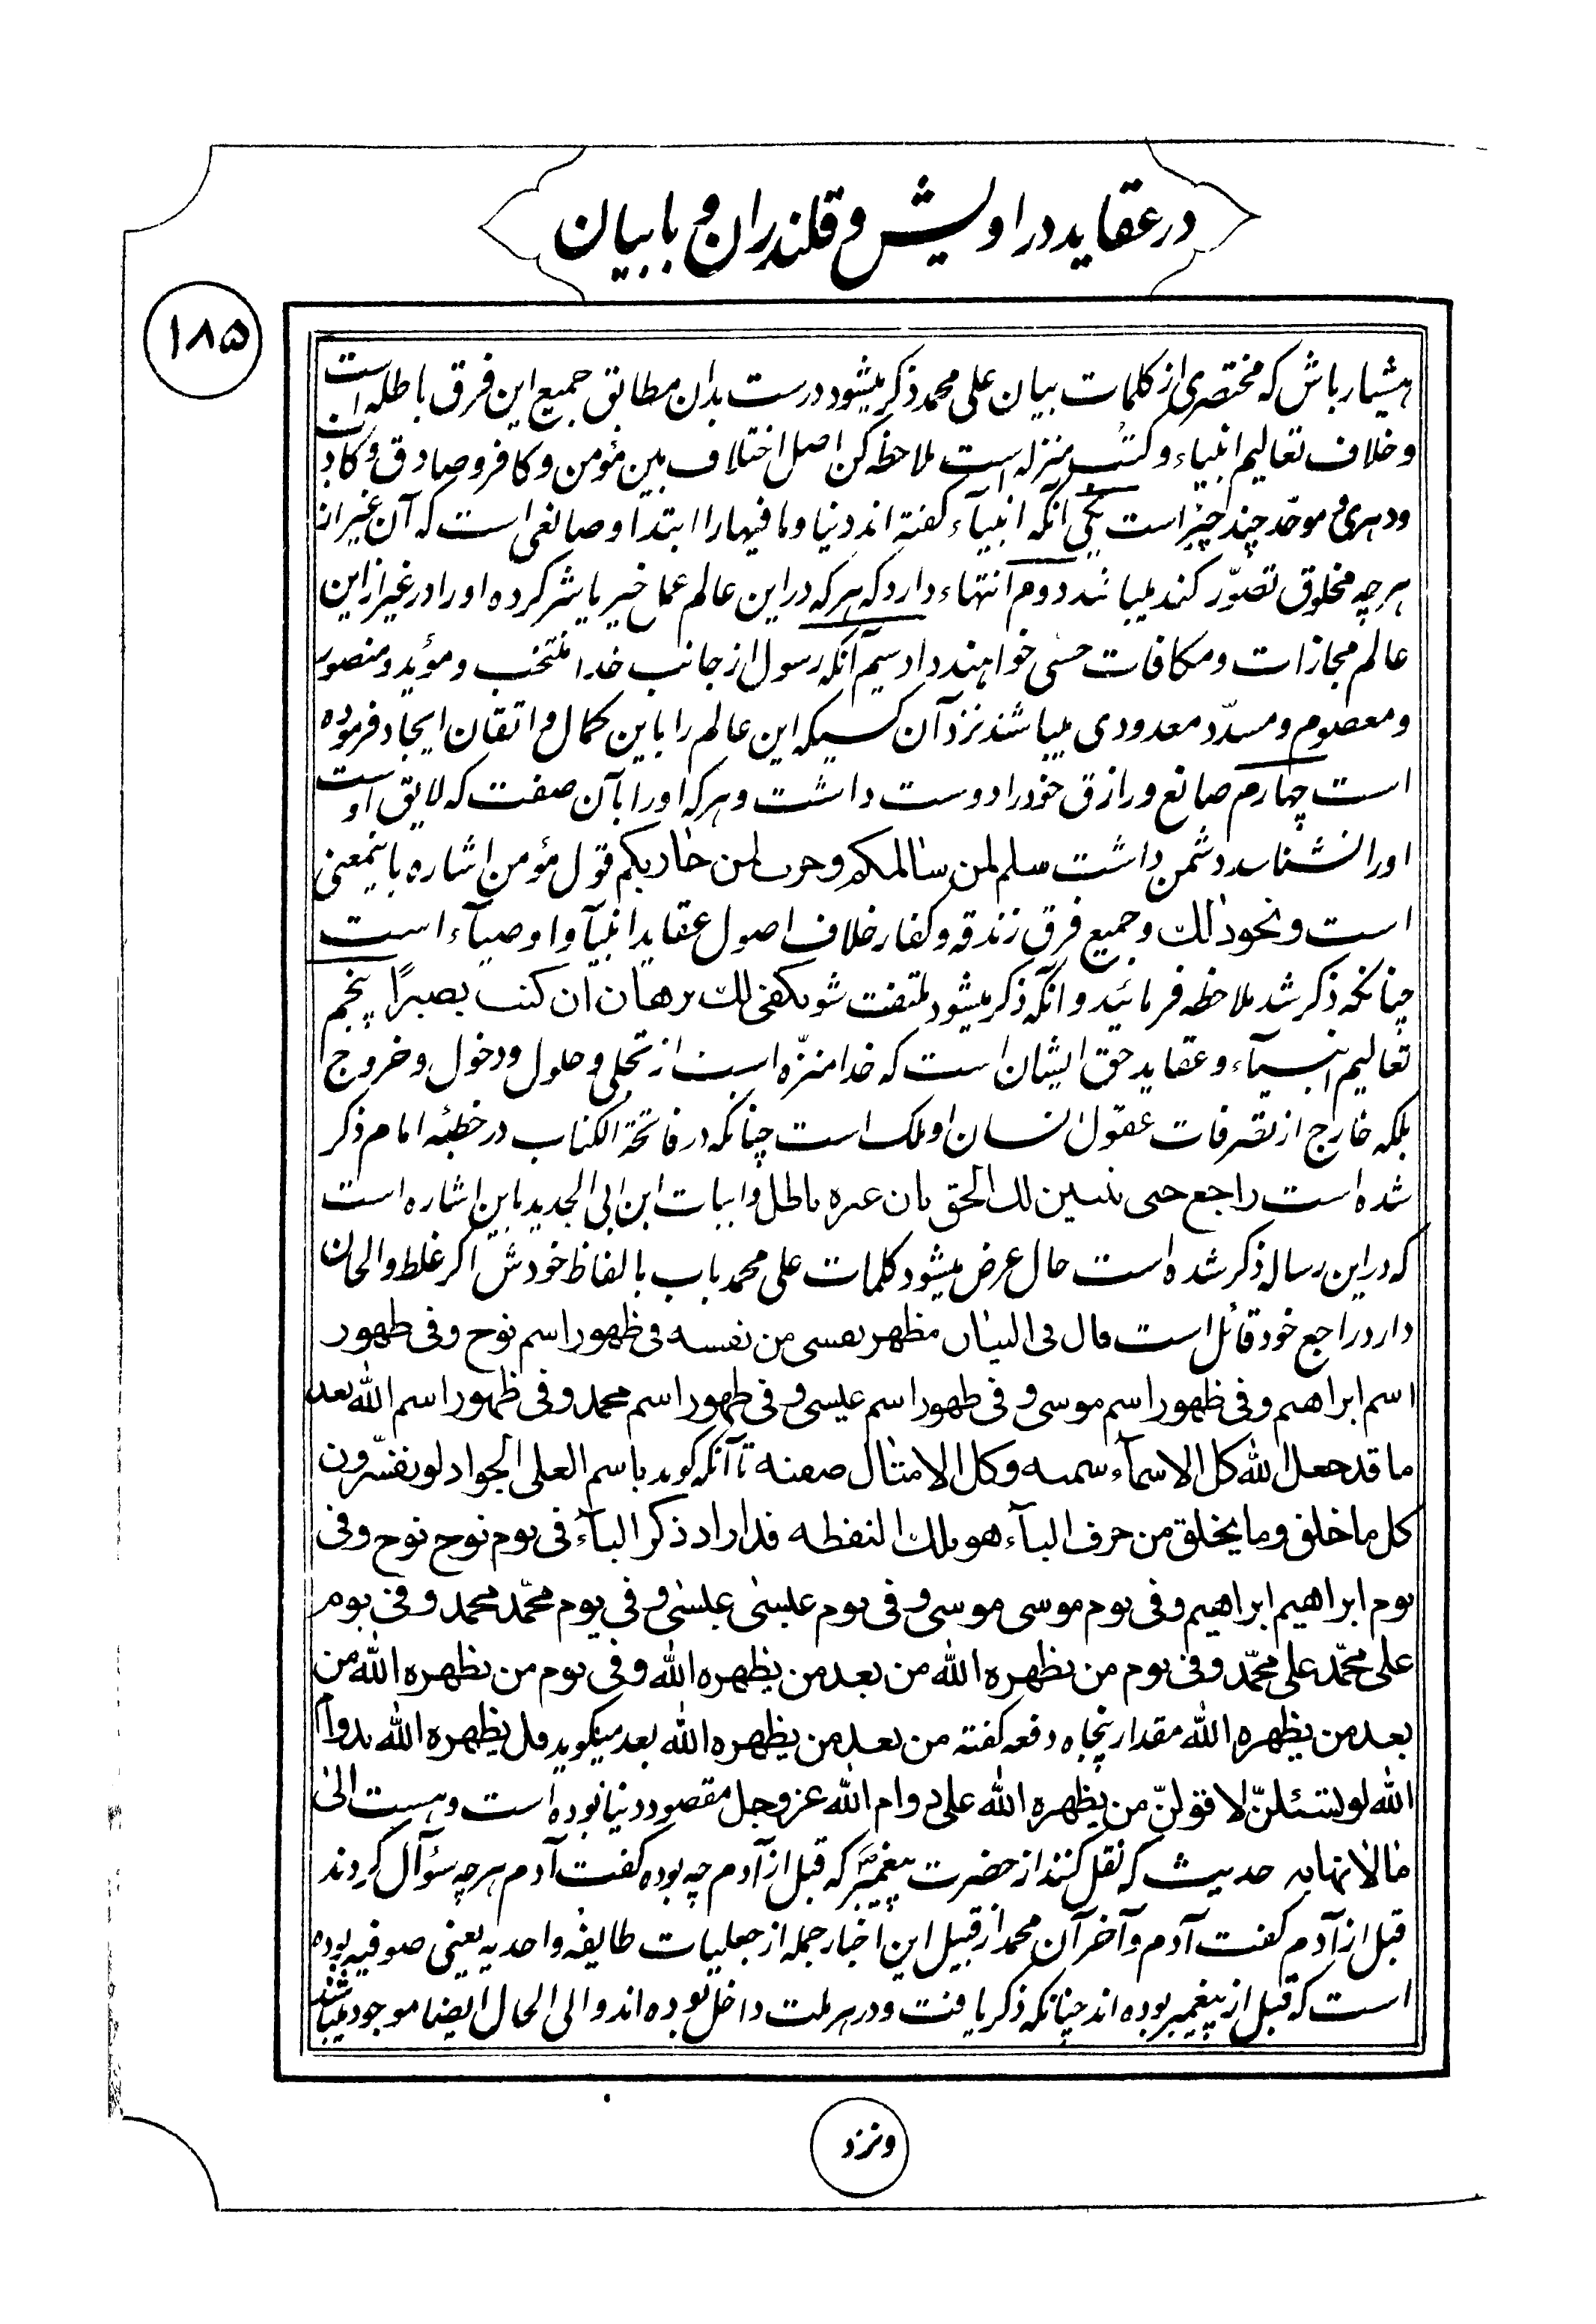 در عقاید دراویش و قلندران و بابیان
۱۸۵
هشیار باش که مختصری از کلمات بیان علی محمد ذکر میشود درست بدان مطابق جمیع این فرق باطله است
و خلاف تعالیم انبیاء و کتب منزله است ملاحظه کن اصل اختلاف بین مؤمن و کافر و صادق و کاذب
و دهری و موحّد چند چیز است یکی آنکه انبیآء گفته اند دنیا و ما فیها را ابتدا و صانعی است که آن غیر از
هر چه مخلوق تصوّر کند میباشد دوم انتهاء دارد که هر که در این عالم عمل خیر یا شر کرده او را در غیر از این
عالم مجازات و مکافات حسّی خواهند داد سیم آنکه رسول از جانب خدا منتخب و مؤید و منصور
و معصوم و مسدّد معدودی میباشند نزد آن کسیکه این عالم را باین کمال و اتقان ایجاد فرموده
است چهارم صانع و رازق خود را دوست داشت و هر که او را بآن صفت که لایق اوست
او را نشناسد دشمن داشت سلم لمن سالمکم و حرب لمن حاربکم قول مؤمن اشاره باینمعنی
است و نحو ذلک و جمیع فرق زندقه و کفار خلاف اصول عقاید انبیآ و اوصیآء است
چنانکه ذکر شد ملاحظه فرمائید و آنکه ذکر میشود ملتفت شو یکفی لک برهان ان کنت بصیرًا پنجم
تعالیم انبیآء و عقاید حق ایشان است که خدا منزّه است از تجلی و حلول و دخول و خروج
بلکه خارج از تصرفات عقول انسان و ملک است چنانکه در فاتحة الکتاب در خطبه امام ذکر
شده است راجع حتی یتبین لک الحق بان غیره باطل و ابیات ابن ابی الحدید باین اشاره است
که در این رساله ذکر شده است حال عرض میشود کلمات علی محمد باب بالفاظ خودش اگر غلط و الحان
دارد راجع خود قائل است قال فی البیان مظهر نفسی من نفسه فی ظهور اسم نوح و فی ظهور
اسم ابراهیم و فی ظهور اسم موسی و فی ظهور اسم عیسی و فی ظهور اسم محمد و فی ظهور اسم الله بعد
ما قد جعل الله کل الاسمآء سمیه و کل الامثال صفته تا آنکه گوید باسم العلی الجواد لو تفسّرون
کل ما خلق و ما یخلق من حرف البآء هو تلک النقطه قد اراد ذکر البآء فی یوم نوح نوح و فی
یوم ابراهیم ابراهیم و فی یوم موسی موسی و فی یوم عیسی عیسی و فی یوم محمّد محمد و فی یوم
علی محمّد علی محمّد و فی یوم من یظهره الله من بعد من یظهره الله و فی یوم من یظهره الله من
بعد من یظهره الله مقدار پنجاه دفعه گفته من بعد من یظهره الله بعد میگوید قل یظهره الله بدوام
الله لو تسئلنّ لاقولنّ من یظهره الله علی دوام الله عز و جل مقصود دنیا بوده است و هست الی
ما لا نهایه حدیث که نقل کنند از حضرت پیغمبر که قبل از آدم چه بوده گفت آدم هر چه سؤال کردند
قبل از آدم گفت آدم و آخر آن محمد از قبیل این اخبار جمله از جعلیات طایفه واحدیه یعنی صوفیه بوده
است که قبل از پیغمبر بوده اند چنانکه ذکر یافت و در هر ملت داخل بوده اند و الی الحال ایضا موجود میباشند
و نزد